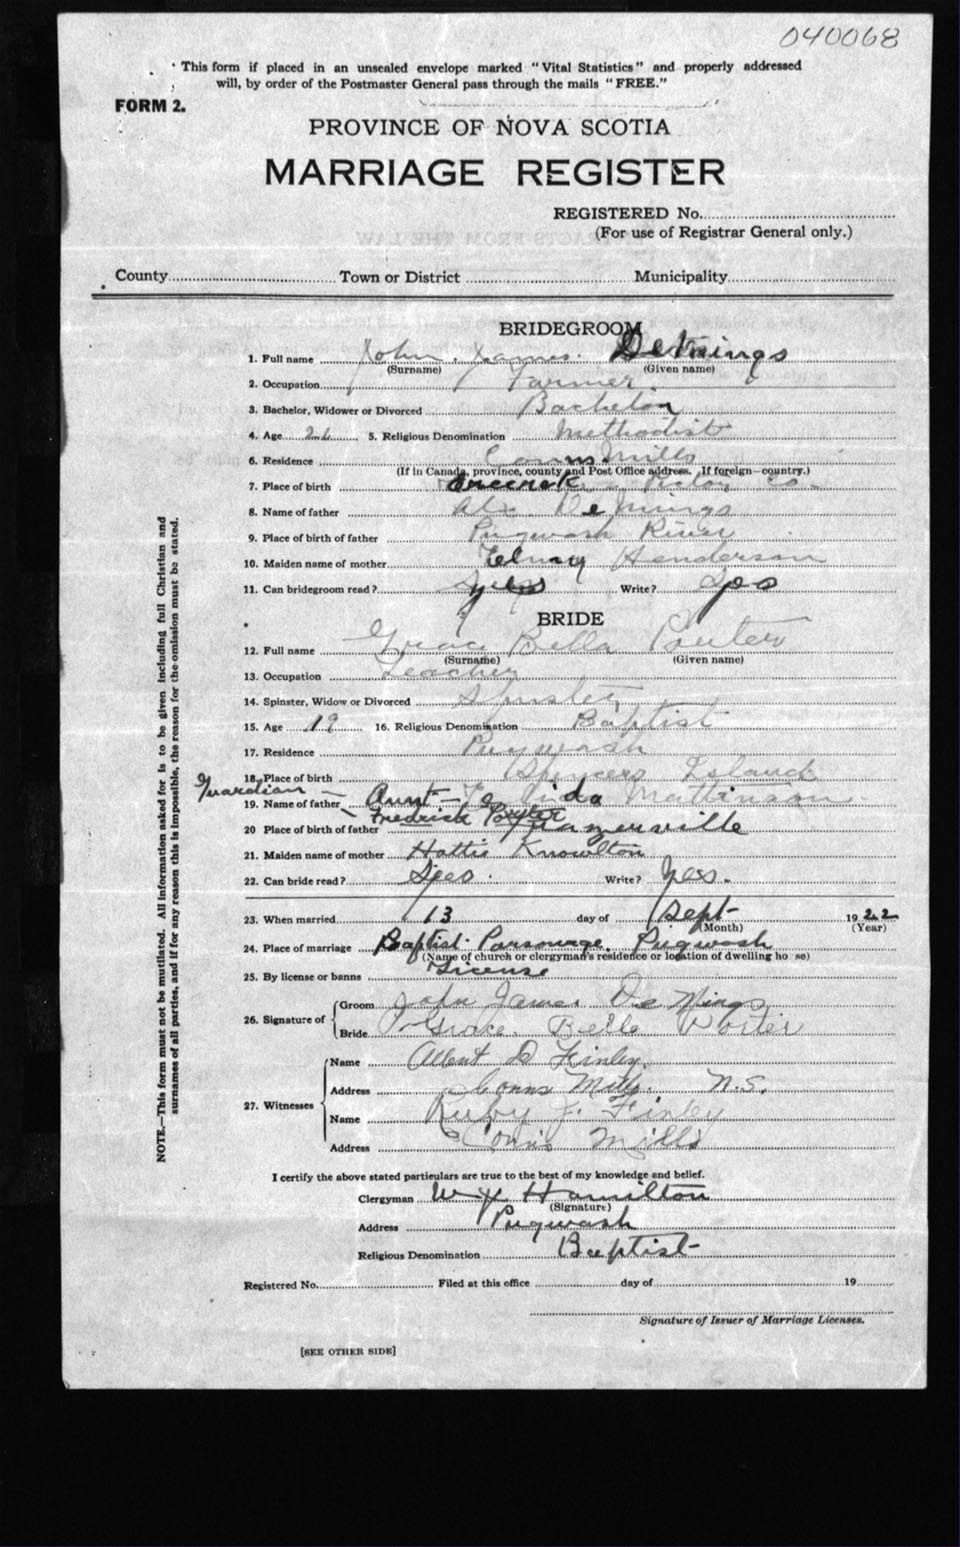 040068
This form if placed in an unsealed envelope marked "Vital Statistics" and properly addressed
will, by order of the Postmaster General pass through the mails "FREE."
FORM 2.
PROVINCE OF NOVA SCOTIA
MARRIAGE REGISTER
REGISTERED No.
(For use of Registrar General only.)
County Town or District Municipality
BRIDEGROOM
1. Full name John James DeNnings
(Surname) (Given name)
2. Occupation Farmer.
3. Bachelor, Widower or Divorced Bachelor
4. Age 26 5. Religious Denomination Methodist
6. Residence Conns Mills
(If in Canada, province, county and Post Office address. If foreign—country.)
7. Place of birth Pictou Co.
8. Name of father Alx
9. Place of birth of father Pugwash River
10. Maiden name of mother Henderson
11. Can bridegroom read? yes Write? yes
BRIDE
12. Full name Grace Bella Porter
(Surname) (Given name)
13. Occupation Teacher
14. Spinster, Widow or Divorced Spinster
15. Age 19 16. Religious Denomination Baptist
17. Residence Pugwash
18. Place of birth Spencers Island
Guardian — Aunt — Mattinson
19. Name of father Fredrick Porter
20 Place of birth of father
21. Maiden name of mother Hattie Knowlton
22. Can bride read? Yes. Write? Yes.
23. When married 13 day of Sept 1922
(Month) (Year)
24. Place of marriage Baptist Parsonage, Pugwash
(Name of church or clergyman's residence or location of dwelling ho se)
25. By license or banns License
26. Signature of
Groom John James De Nings
Bride Grace Belle Porter
27. Witnesses
Name D Finley.
Address Conns Mills. N.S.
Name Ruby J. Finley
Address Conns Mills
I certify the above stated particulars are true to the best of my knowledge and belief.
Clergyman Hamilton
(Signature)
Address Pugwash
Religious Denomination Baptist
Registered No. Filed at this office day of 19
Signature of Issuer of Marriage Licenses.
[SEE OTHER SIDE]
NOTE.—This form must not be mutilated. All information asked for is to be given including full Christian and
surnames of all parties, and if for any reason this is impossible, the reason for the omission must be stated.